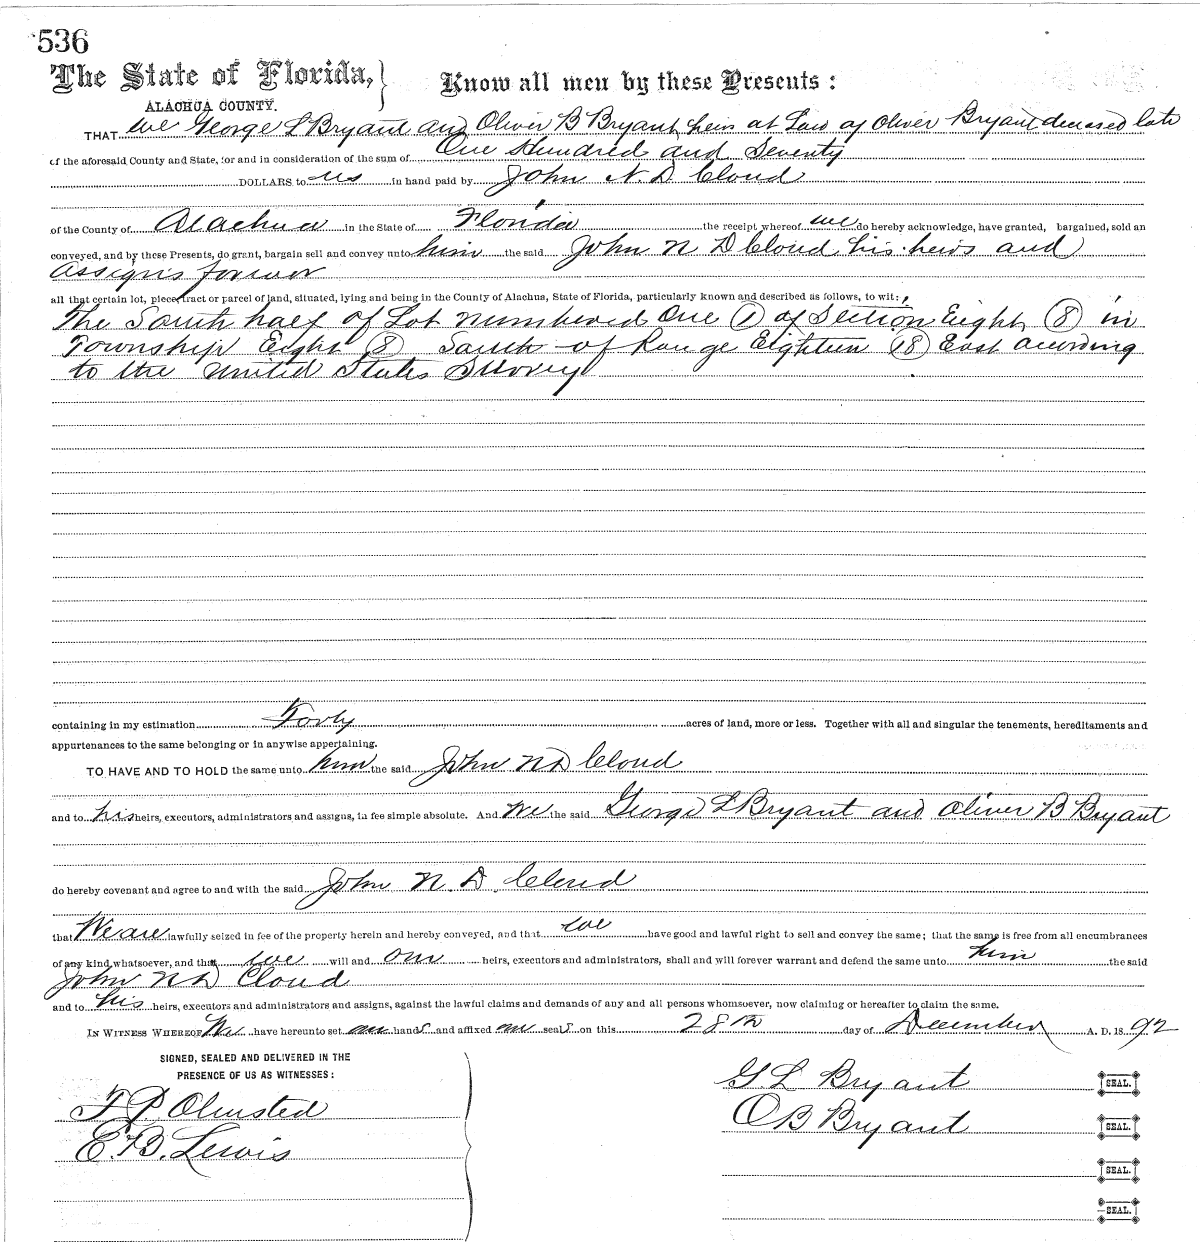 536
The State of Florida, } Know all men by these Presents:
ALACHUA COUNTY.
THAT we George L Bryant and Oliver B Bryant heirs at Law of Oliver Bryant deceased late
of the aforesaid County and State, for and in consideration of the sum of One Hundred and Seventy
DOLLARS to us in hand paid by John N. D Cloud
of the County of Alachua in the State of Florida the receipt whereof we do hereby acknowledge, have granted, bargained, sold an
conveyed, and by these Presents, do grant, bargain sell and convey unto him the said John N D Cloud his heirs and
assigns forever
all that certain lot, piece, tract or parcel of land, situated, lying and being in the County of Alachua, State of Florida, particularly known and described as follows, to wit:
The South half of Lot Numbered One (1) of Section Eight (8) in
Township Eight (8) South of Range Eighteen (18) East according
to the United States Survey
containing in my estimation Forty acres of land, more or less. Together with all and singular the tenements, hereditaments and
appurtenances to the same belonging or in anywise appertaining.
TO HAVE AND TO HOLD the same unto him the said John N D Cloud
and to his heirs, executors, administrators and assigns, in fee simple absolute. And We the said George L Bryant and Oliver B Bryant
do hereby covenant and agree to and with the said John N. D. Cloud
that We are lawfully seized in fee of the property herein and hereby conveyed, and that we have good and lawful right to sell and convey the same; that the same is free from all encumbrances
of any kind whatsoever, and that we will and our heirs, executors and administrators, shall and will forever warrant and defend the same unto him the said
John N D Cloud
and to his heirs, executors and administrators and assigns, against the lawful claims and demands of any and all persons whomsoever, now claiming or hereafter to claim the same.
IN WITNESS WHEREOF We have hereunto set our hands and affixed our seals on this 28th day of December A. D. 1892
SIGNED, SEALED AND DELIVERED IN THE
PRESENCE OF US AS WITNESSES:
G L Bryant SEAL.
F. P. Olmsted
O B Bryant SEAL.
E. B. Lewis
SEAL.
SEAL.